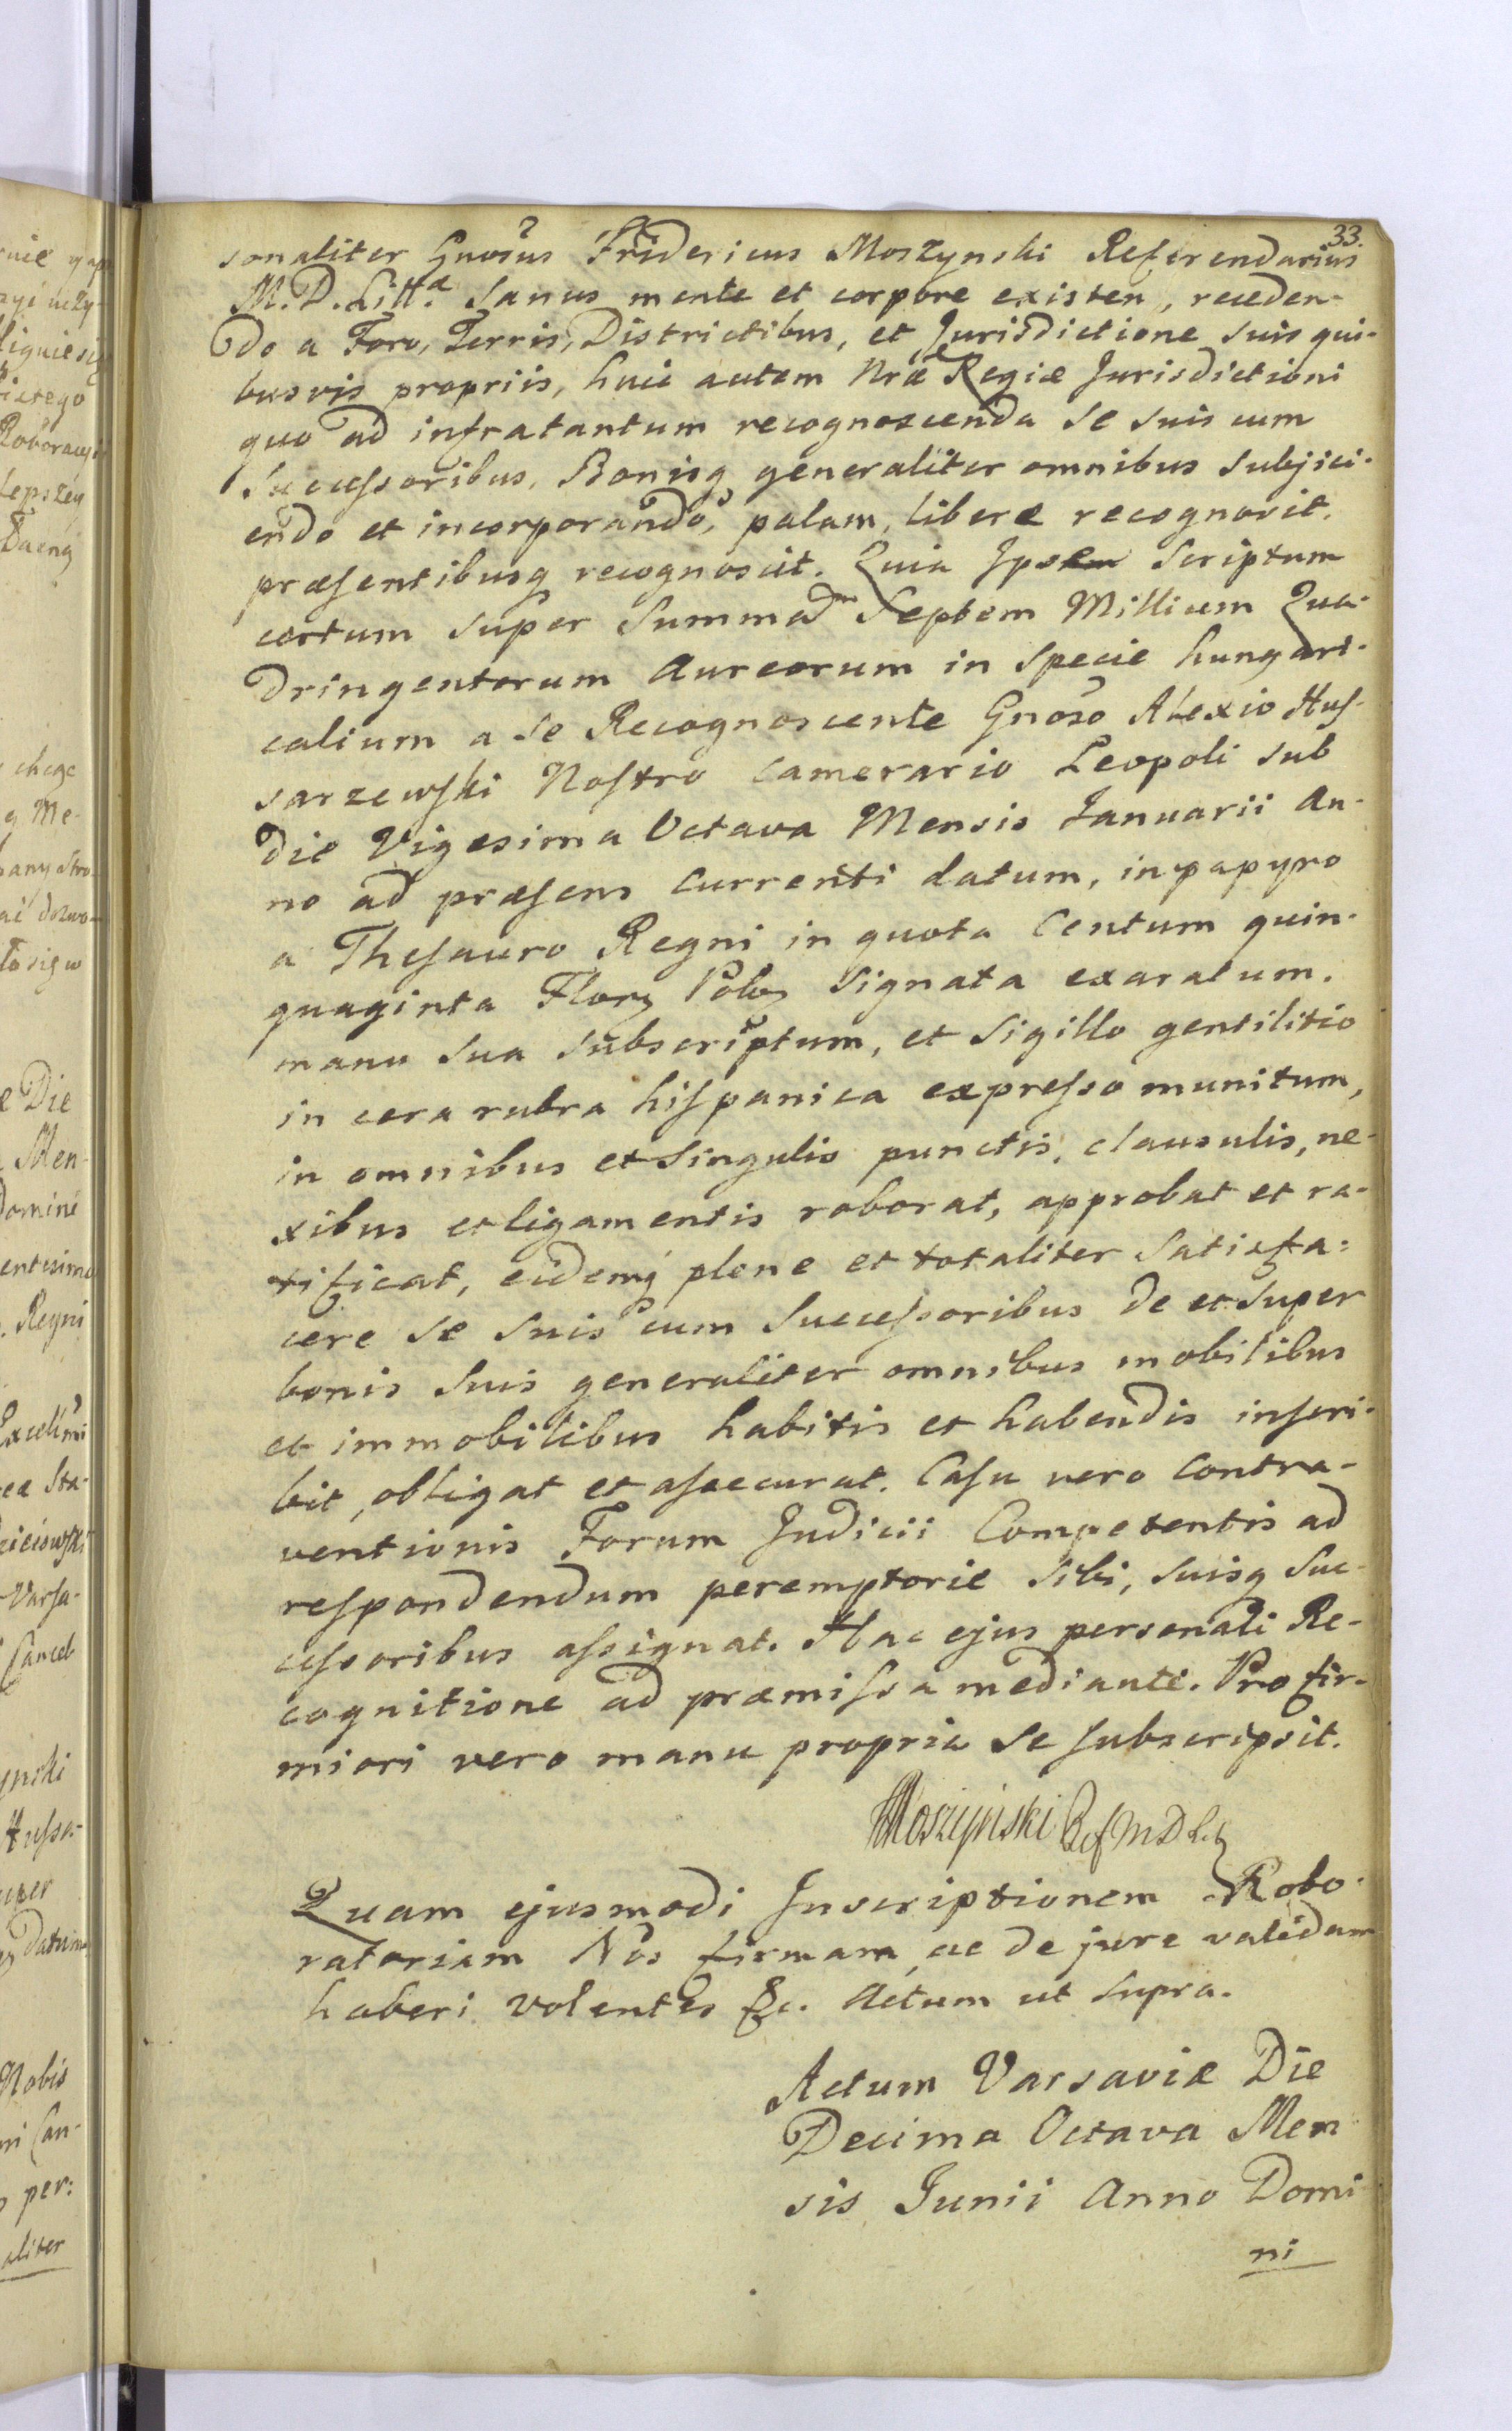 33.
sonaliter Gnosus Fridericus Moszynski Referendarius
M. D. Litt.æ Sanus mente et corpore existen, receden-
do a Foro, Terris, Districtibus, et Jurisdictione suis qui-
busvis propriis, huic autem Nræ Regiæ Jurisdictioni
quo ad infratantum recognoscenda se suis cum
Successoribus, Bonisq generaliter omnibus subjici-
endo et incorporando, palam, libere recognovit,
præsentibusq recognoscit. Quia Ipsem Scriptum
certum super Summam Septem Millium Qua-
dringentorum Aureorum in specie hungari-
calium a se Recognoscente Gnoso Alexio Hus-
sarzewski Nostro Camerario Leopoli sub
die Vigesima Octava Mensis Januarii An-
no ad præsens currenti datum, in papyro
a Thesauro Regni in quota Centum quin-
quaginta Flor Pol signata exaratum.
manu sua subscriptum, et Sigillo gentilitio
in cera rubra hispanica expresso munitum,
in omnibus et singulis punctis, clausulis, ne-
xibus et ligamentis roborat, approbat et ra-
tificat, eidemq plene et totaliter satisfa-
cere se suis cum Successoribus de et super
bonis suis generaliter omnibus mobilibus
et immobilibus habitis et habendis inscri-
bit, obligat et assecurat. Casu vero contra-
ventionis Forum Judicii Competentis ad
respondendum peremptorie sibi, suisq Suc-
cessoribus assignat. Hac ejus personali Re-
cognitione ad præmissa mediante. Pro fir-
miori vero manu propria se subscripsit.
Moszyński Ref M D L
Quam ejusmodi Inscriptionem Robo-
ratoriam Nos firmam, ac de jure validam
haberi volentes &c. Actum ut supra.
Actum Varsaviæ Die
Decima Octava Men
sis Junii Anno Domi
ni